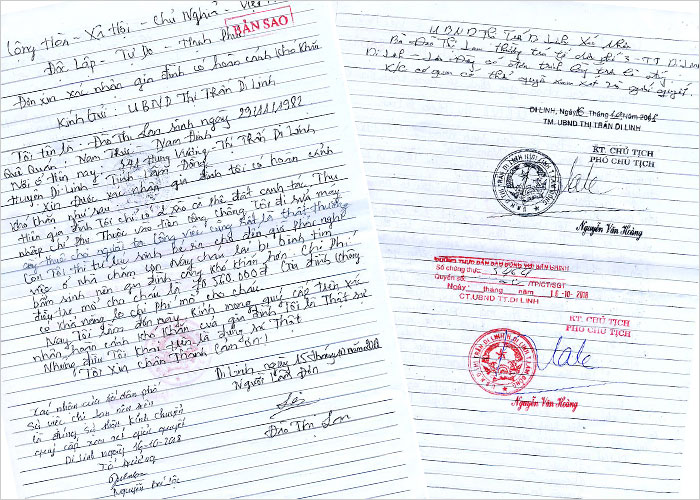 Cộng Hòa - Xã Hội - Chủ Nghĩa - Việt
BẢN SAO
Độc Lập - Tự Do - Hạnh Phúc
Đơn xin xác nhận gia đình có hoàn cảnh khó khăn
Kính Gửi: UBND Thị Trấn Di Linh
Tôi tên là: Đào Thị Lan Sinh ngày 29/11/1982
Quê Quán: Nam Trực - Nam Định
Nơi ở hiện nay: 541 Hùng Vương - Thị Trấn Di Linh
Huyện Di Linh - Tỉnh Lâm Đồng
Xin được xác nhận gia đình tôi có hoàn cảnh
khó khăn như sau
Hiện gia đình Tôi chỉ có 2 sào cà phê đất canh tác. Thu
nhập chỉ phụ thuộc vào tiền công chồng Tôi đi sửa máy
cày thuê cho người ta công việc cũng rất là thất thường
Còn Tôi thì tư lúc sinh ra cho đến giờ phải nghỉ
việc ở nhà chăm con vì cháu lại bị bệnh tim
bẩm sinh nên gia đình càng khó khăn hơn. Chi Phí
điều trị mổ cho cháu là 70.560.000đ Gia đình không
có khả năng lo chi phí mổ cho cháu.
Nay Tôi làm đơn này kính mong quý cấp trên xác
nhận hoàn cảnh khó khăn của gia đình Tôi là Thật sự
Những điều Tôi khai trên là đúng sự Thật
Tôi Xin chân Thành Cảm ơn!
Di Linh, ngày 15 tháng 10 năm 2018
Người Làm Đơn
Đào Thị Lan
Xác nhận của tổ dân phố
Sự việc chị Lan nêu trên
là đúng sự thật kính chuyển
quý cấp xem xét giải quyết
Di Linh ngày 16-10-2018
Tổ trưởng
Nguyễn
UBND TT Di Linh Xác Nhận
Bà Đào Thị Lan thường trú tại tổ dân phố 3 - TT Di Linh
Di Linh - Lâm Đồng có đơn trình bày trên là đúng.
K/c cơ quan có thẩm quyền xem xét và giải quyết.
DI LINH, Ngày 16 Tháng 10 năm 2018
TM. UBND THỊ TRẤN DI LINH
KT. CHỦ TỊCH
PHÓ CHỦ TỊCH
Nguyễn Văn Hoàng
CHỨNG THỰC BẢN SAO ĐÚNG VỚI BẢN CHÍNH
Số chứng thực:
Quyển số: TP/CT/SGT
Ngày tháng năm 16-10-2018
CT.UBND TT.DI LINH
KT. CHỦ TỊCH
PHÓ CHỦ TỊCH
Nguyễn Văn Hoàng